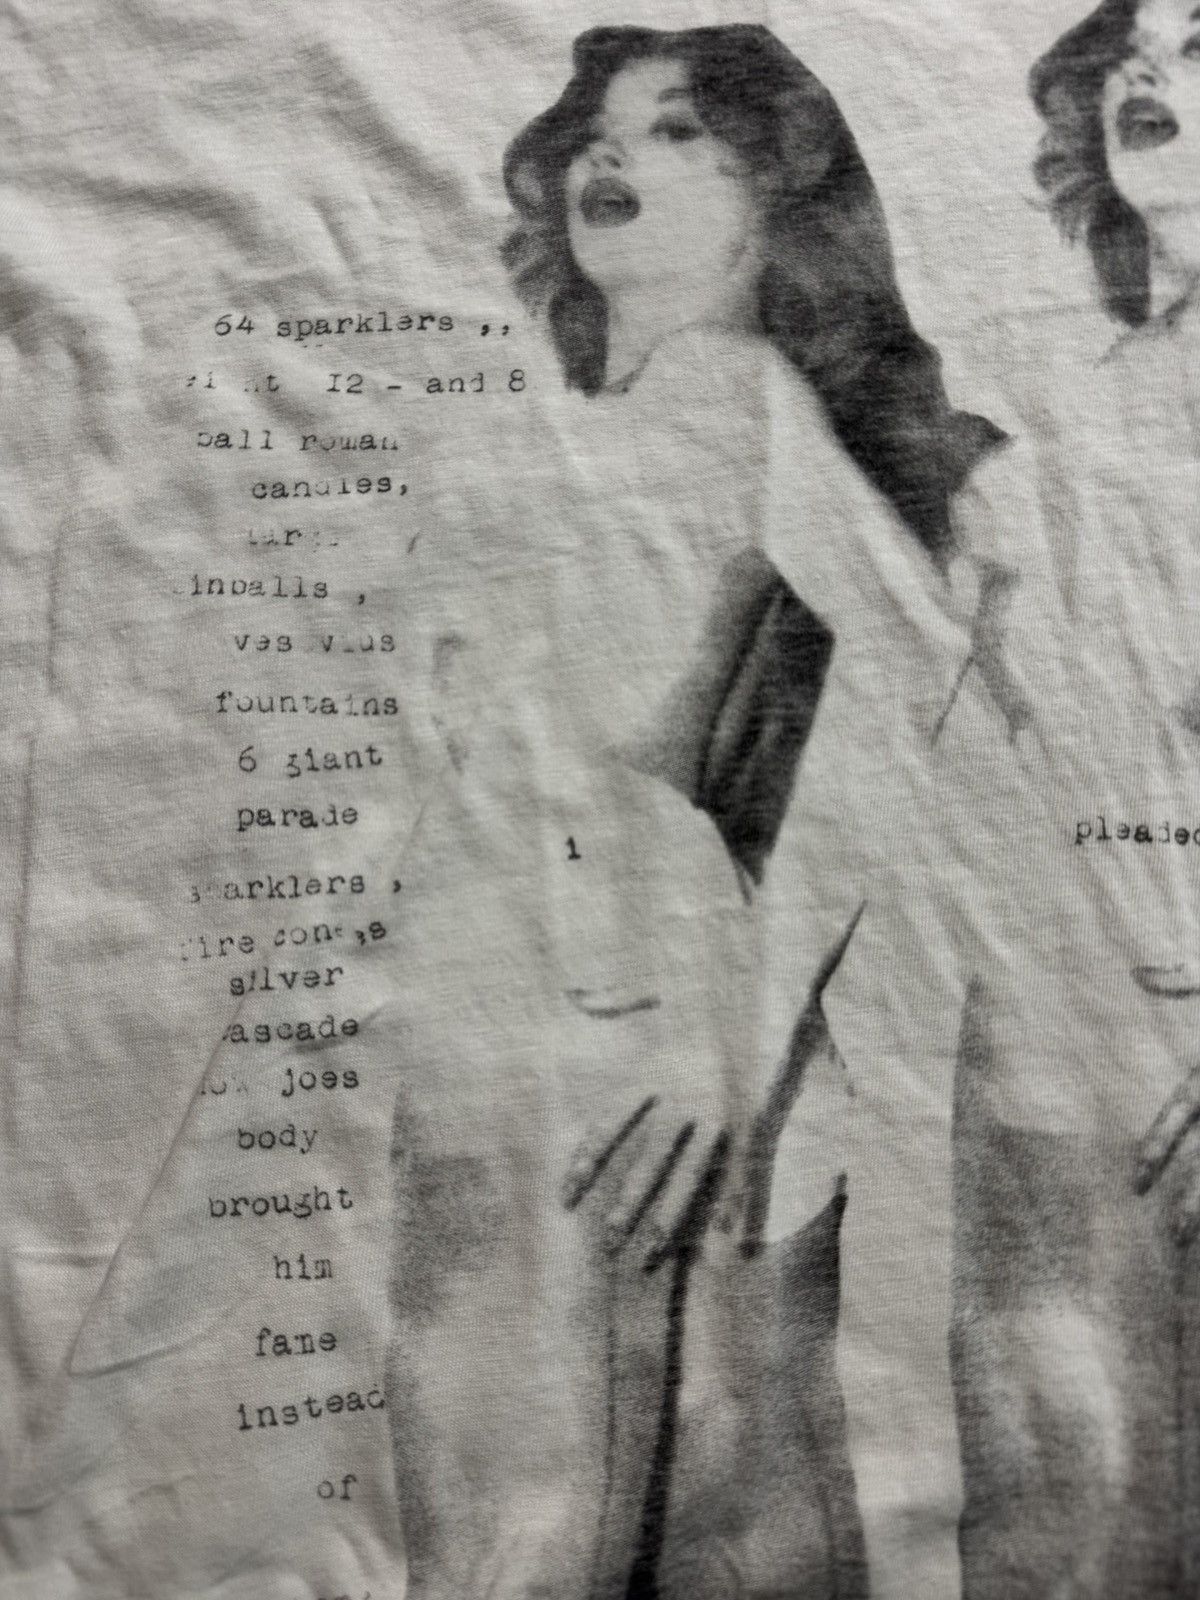 64 sparklers ,,
12 - and 8
ball roman
candles,
vesuvius
fountains
6 giant
parade
sparklers ,
fire cones
silver
cascade
joes
body
brought
him
fame
instead
of
1
pleaded